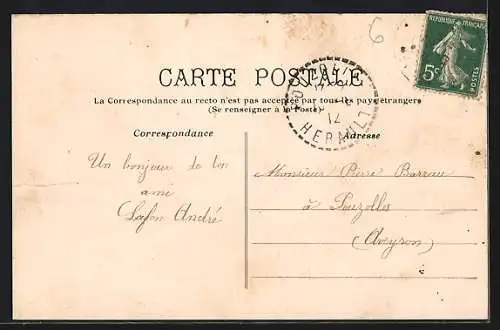 6
REPUBLIQUE FRANCAISE
5c
POSTES
CARTE POSTALE
La Correspondance au recto n'est pas acceptée par tous les pays étrangers
(Se renseigner à la Poste)
HERAULT
Correspondance
Adresse
Un bonjour de ton
ami
Lafon André
Monsieur Pierre Barrau
à
(Aveyron)